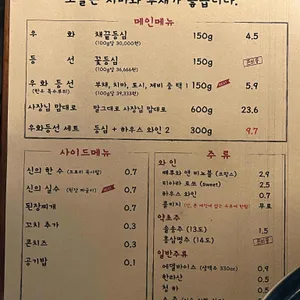 메인메뉴
우 화 채끝등심 150g 4.5
(100g당 30,000원)
등 선 꽃등심 150g
(100g당 36,666원)
우화등선 부채, 치마, 토시, 제비 중 택1 150g 5.9
(100g당 39,333원)
사장님 맘대로 말그대로 사장님 맘대로 600g 23.6
우화등선 세트 등심 + 하우스 와인 2 300g 9.7
사이드메뉴
신의 한 수 0.7
신의 실수 0.7
된장찌개 0.7
꼬치 추가 0.3
콘치즈 0.3
공기밥 0.1
주 류
와 인
2.9
(Sweet) 2.5
하우스 와인 0.7
콜키지 무료
약초주
솔송주 (13도) 1.5
홍삼명주 (14도)
일반주류
에델바이스 0.9
한라산 0.5
청 하